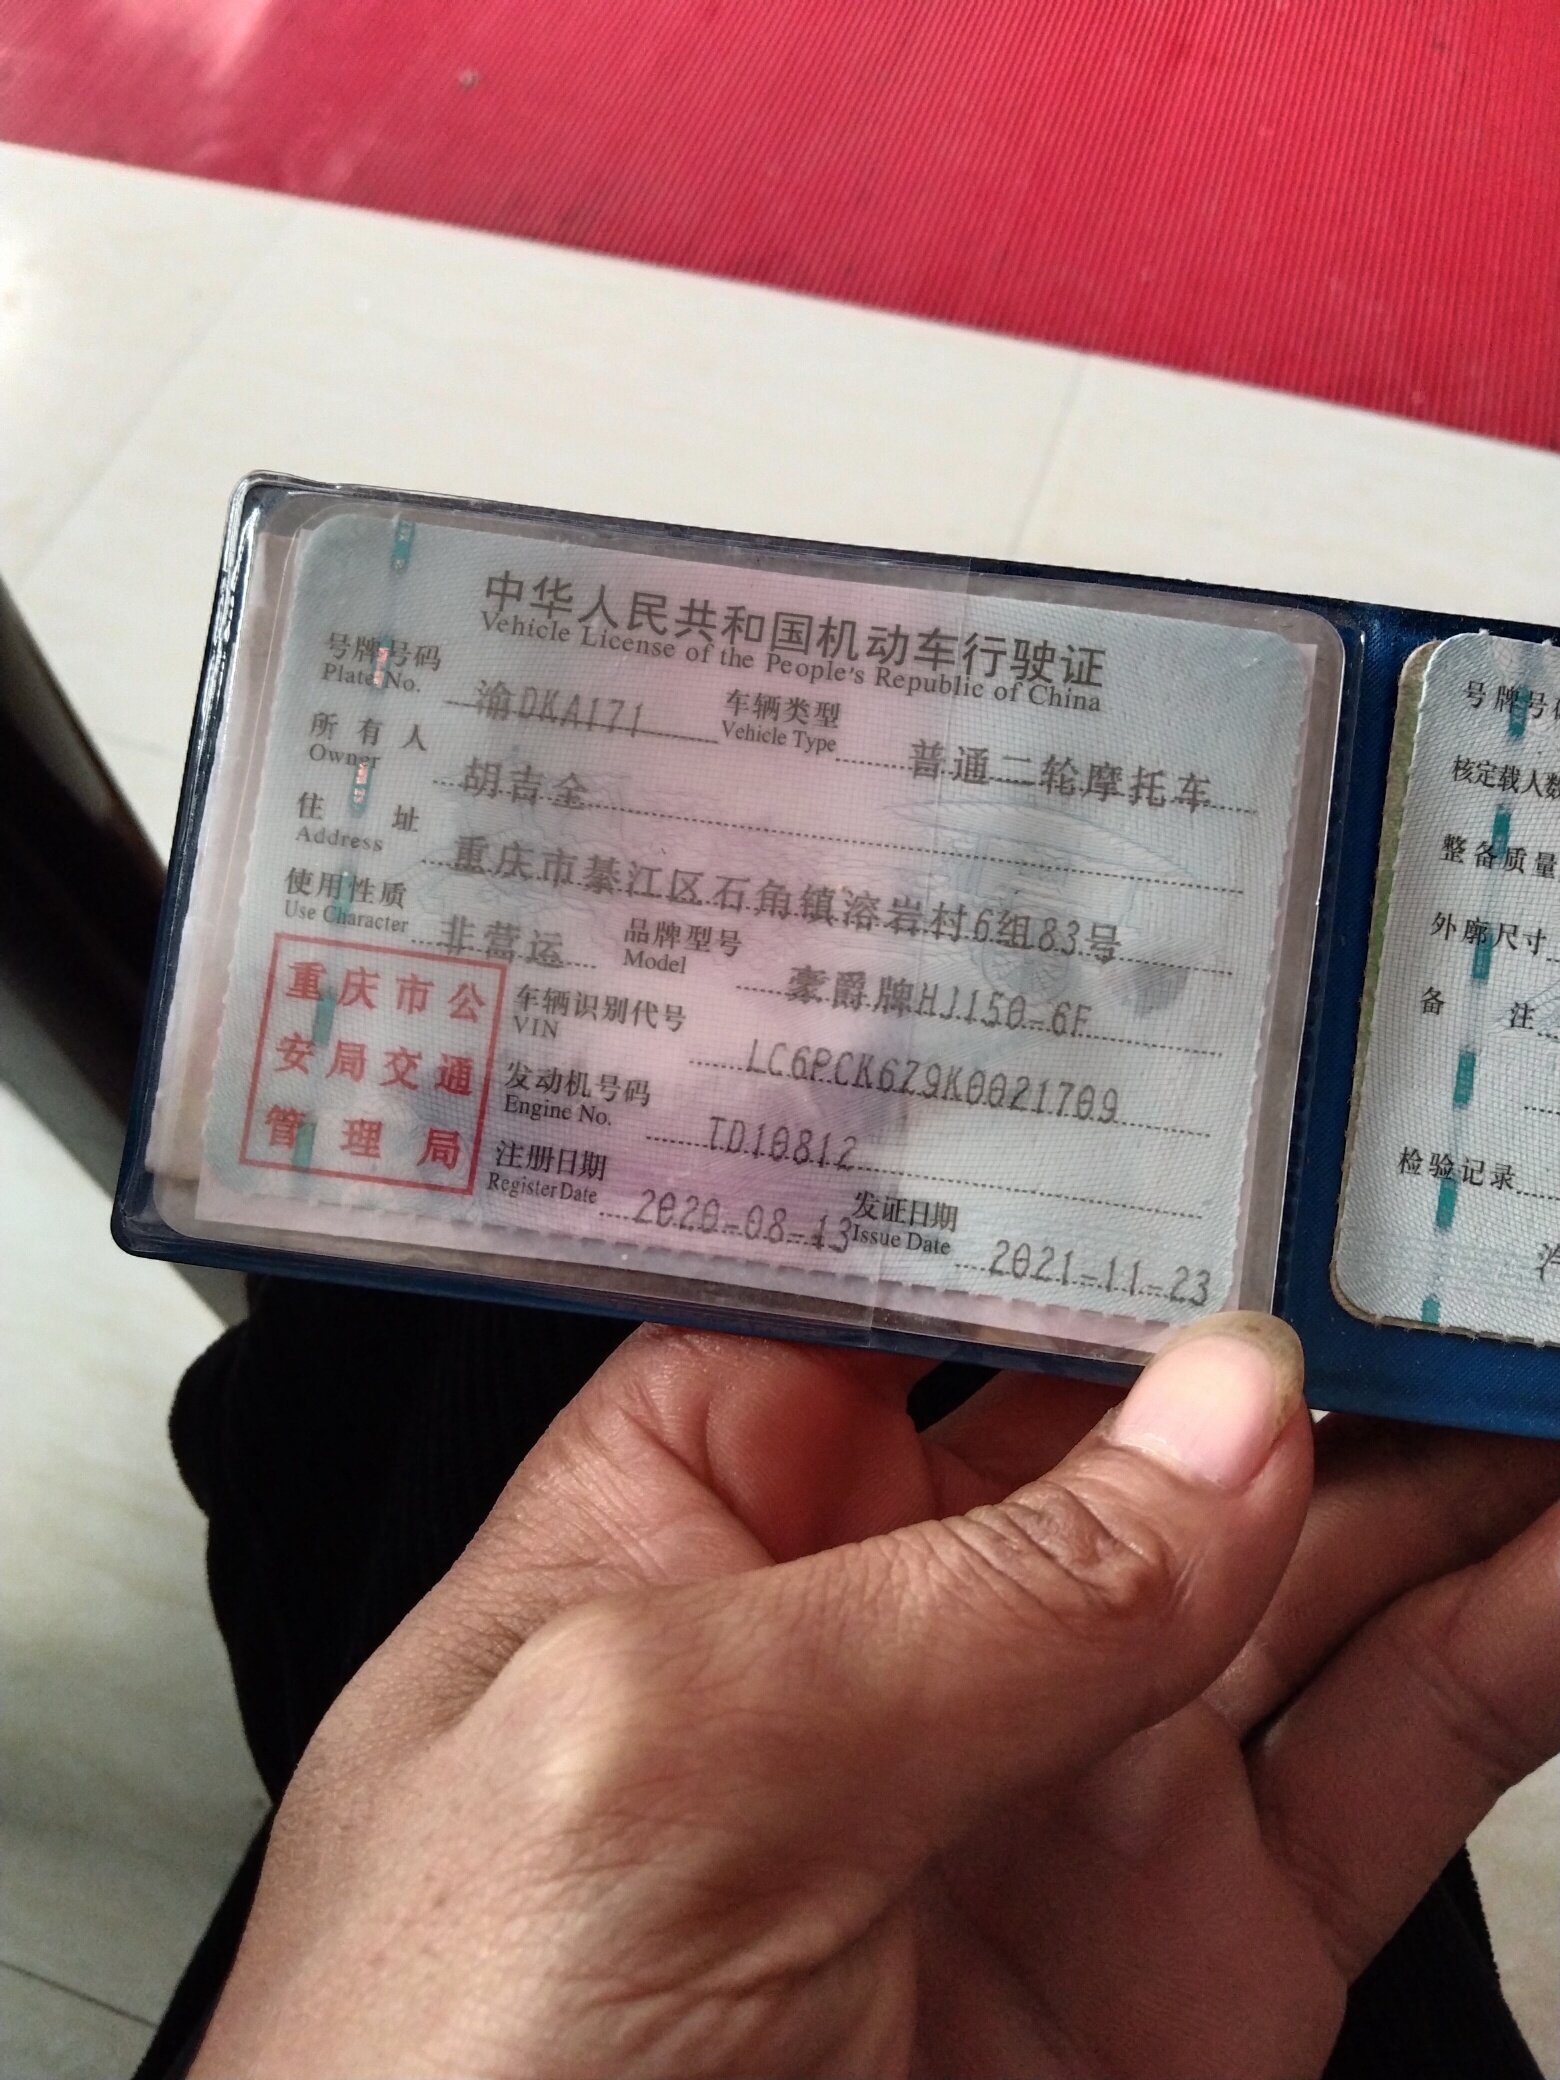 中华人民共和国机动车行驶证
Vehicle License of the People's Republic of China
号牌号码 渝DKA171 车辆类型 普通二轮摩托车
Plate No. Vehicle Type
所有人 胡吉全
Owner
住址 重庆市綦江区石角镇溶岩村6组83号
Address
使用性质 非营运 品牌型号 豪爵牌HJ150-6F
Use Character Model
重庆市公
安局交通
管理局
车辆识别代号 LC6PCK6Z9K0021709
VIN
发动机号码 TD10812
Engine No.
注册日期 2020-08-13 发证日期 2021-11-23
Register Date Issue Date
号牌号码
核定载人数
整备质量
外廓尺寸
备注
检验记录